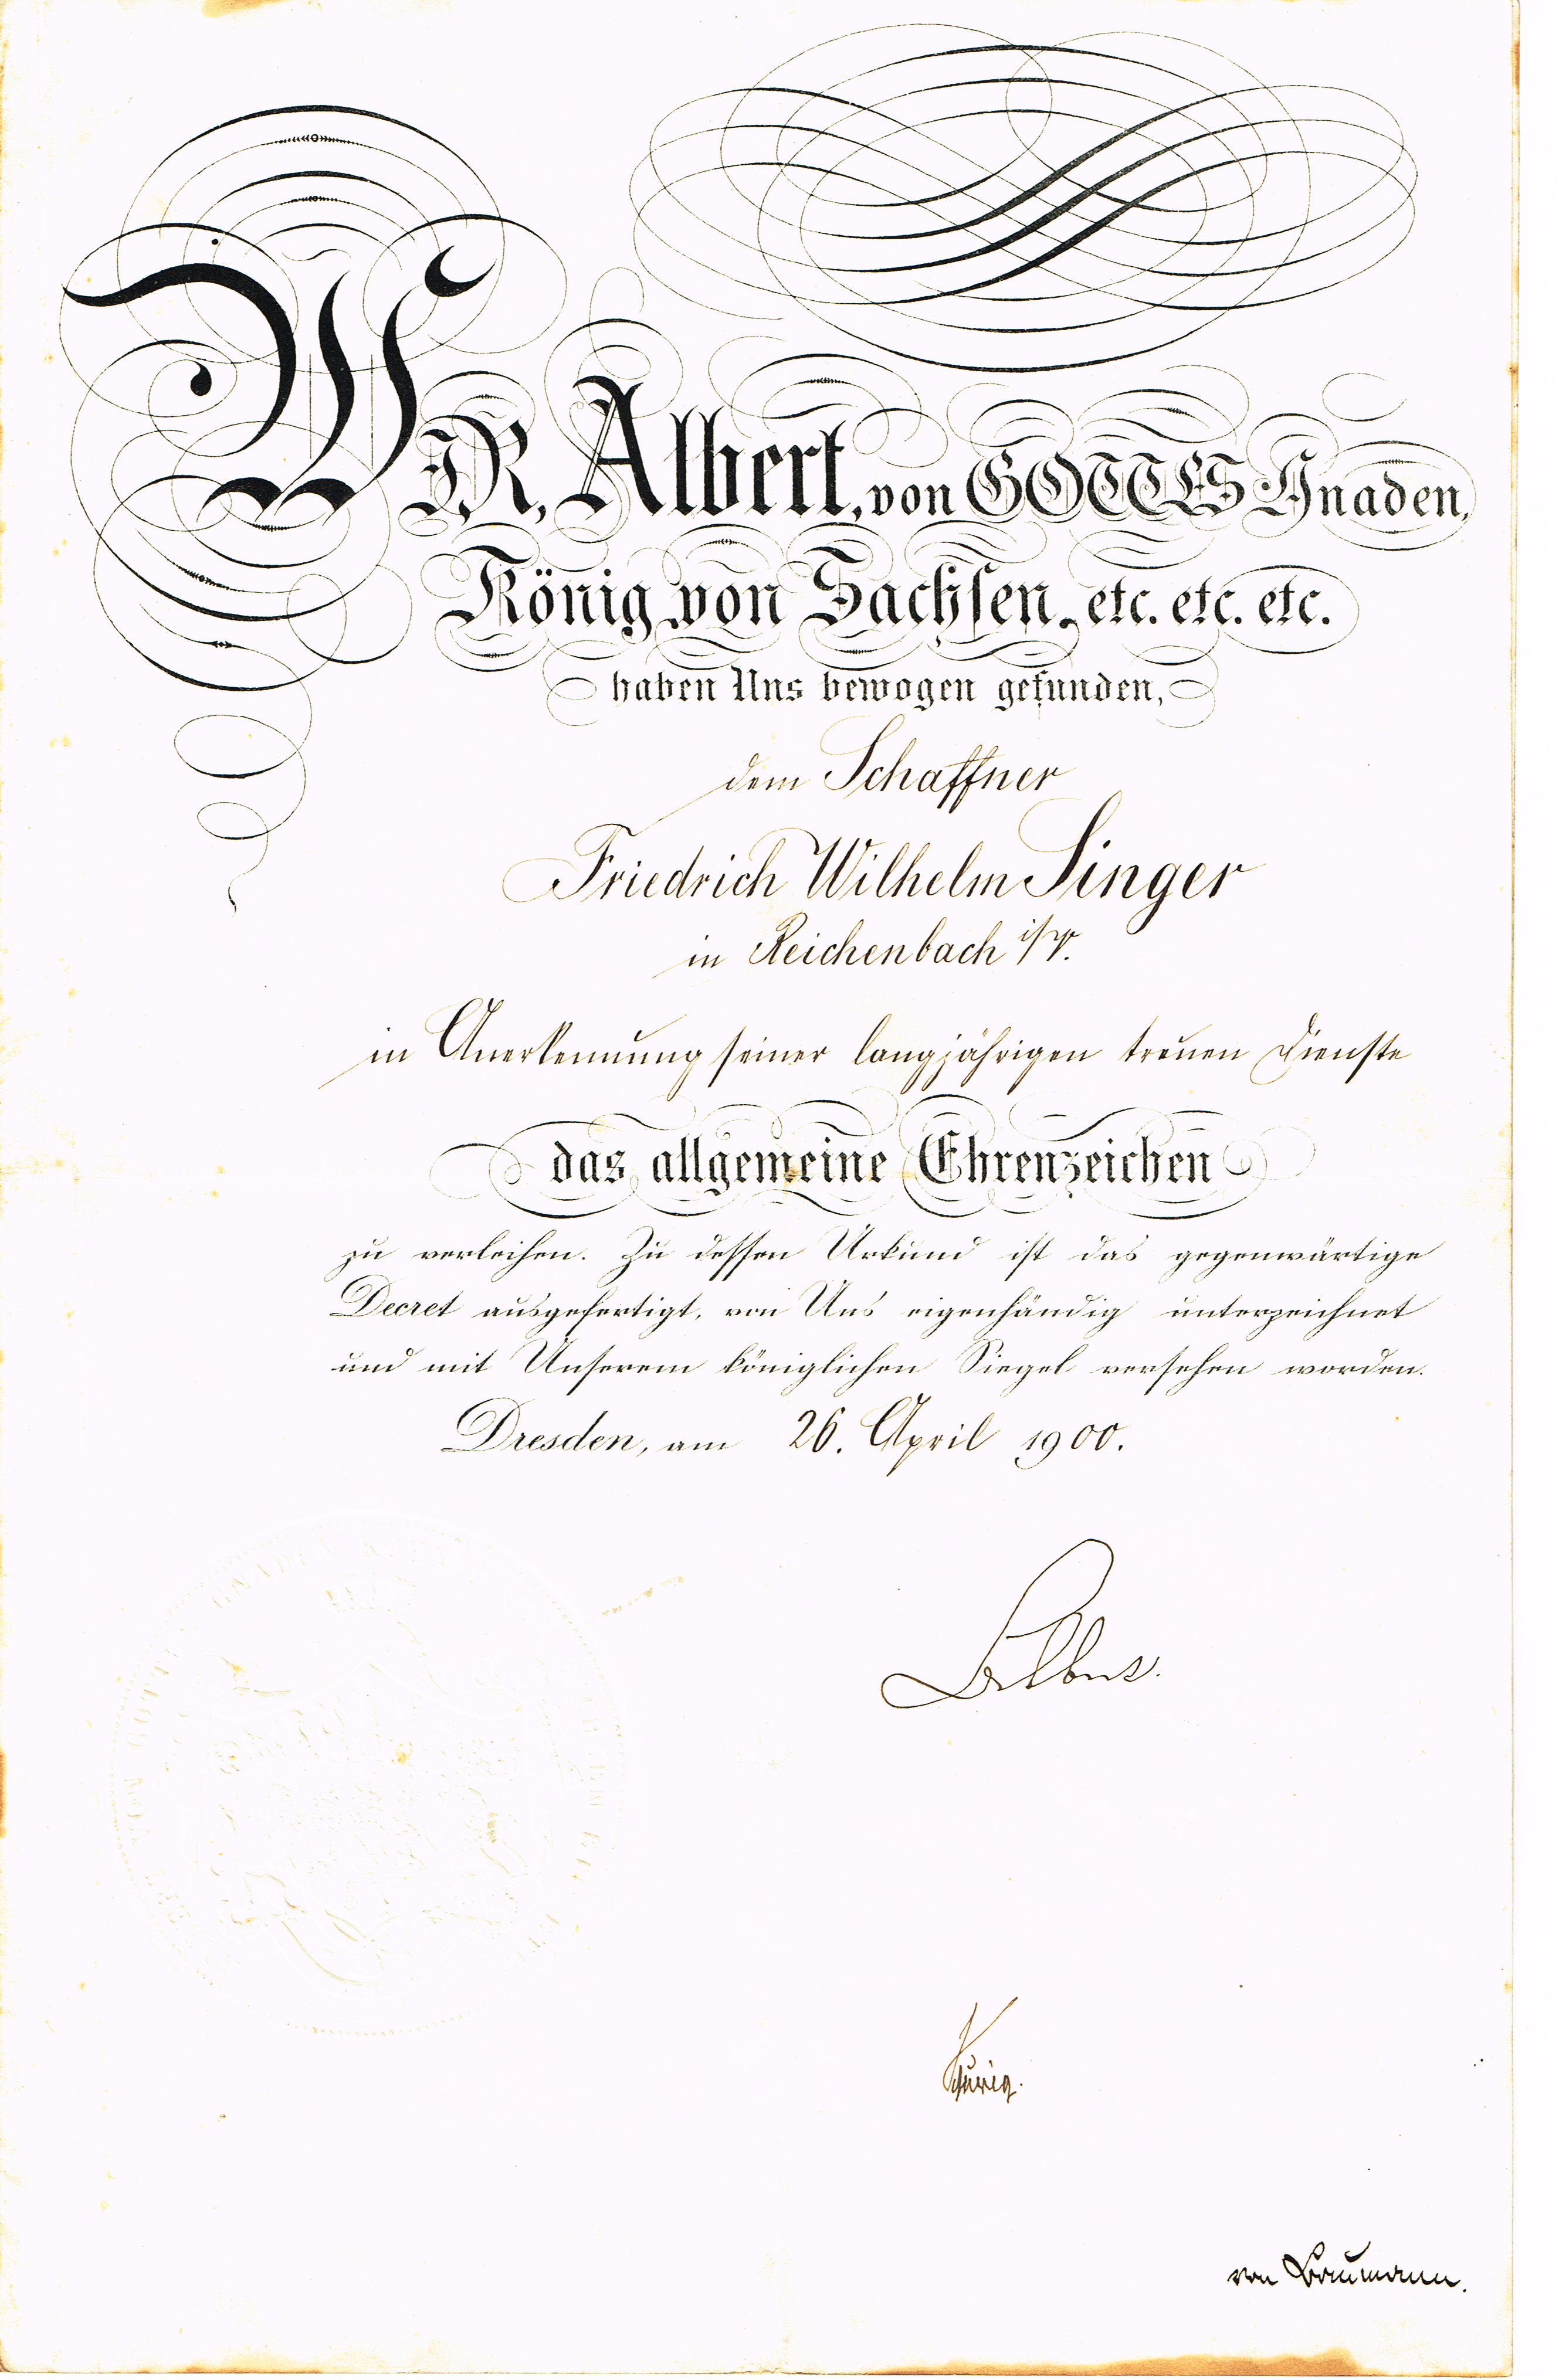 WIR, Albert, von GOTTES Gnaden,
König von Sachsen, etc. etc. etc.
haben Uns bewogen gefunden,
dem Schaffner
Friedrich Wilhelm Singer
in Reichenbach i/V.
in Anerkennung seiner langjährigen treuen Dienste
das allgemeine Ehrenzeichen
zu verleihen. Zu dessen Urkund ist das gegenwärtige
Decret ausgefertigt, von Uns eigenhändig unterzeichnet
und mit Unserem königlichen Siegel versehen worden.
Dresden, am 26. April 1900.
Schurig.
von Baumann.